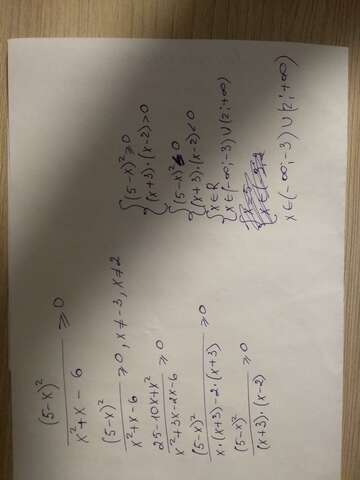 (5-x)² / (x²+x-6) ≥ 0
(5-x)² / (x²+x-6) ≥ 0, x≠-3, x≠2
(25-10x+x²) / (x²+3x-2x-6) ≥ 0
(5-x)² / (x·(x+3)-2·(x+3)) ≥ 0
(5-x)² / ((x+3)·(x-2)) ≥ 0
{ (5-x)² ≥ 0
{ (x+3)·(x-2) > 0
{ (5-x)² ≤ 0
{ (x+3)·(x-2) < 0
{ x∈R
{ x∈(-∞;-3)∪(2;+∞)
x∈(-∞;-3)∪(2;+∞)